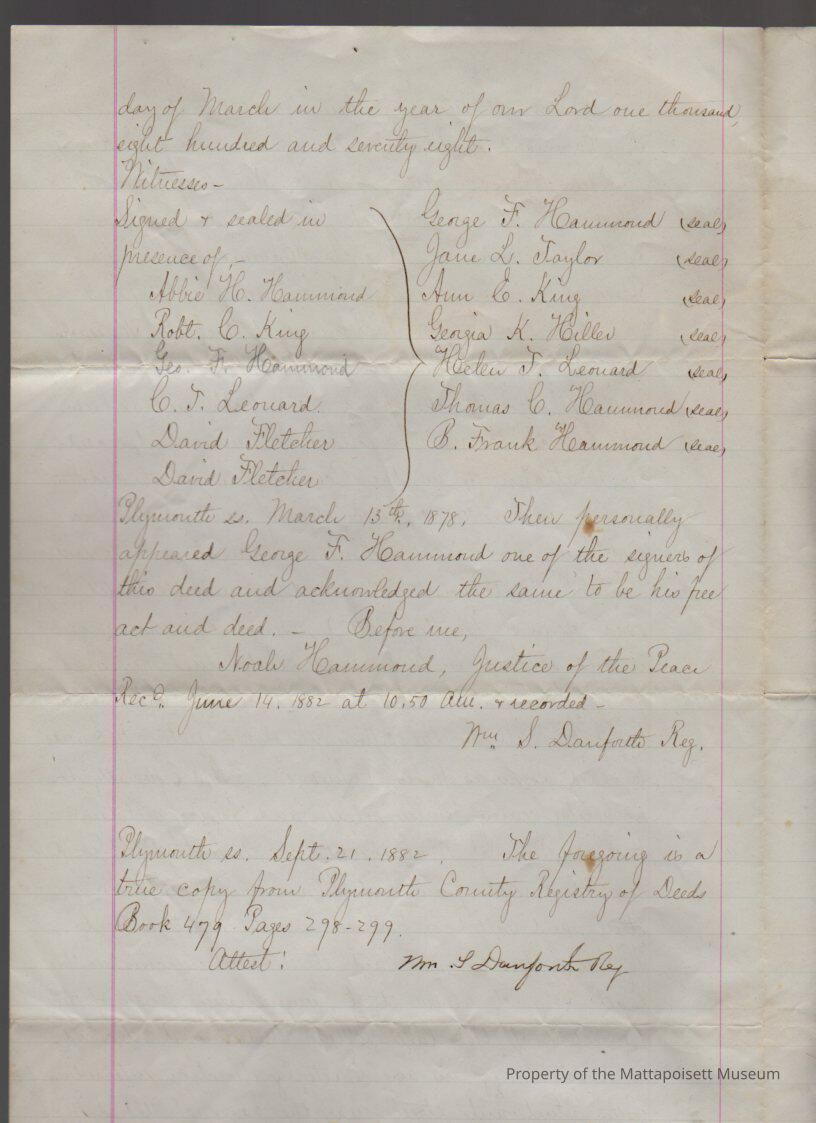 day of March in the year of our Lord one thousand,
eight hundred and seventy eight.
Witnesses-
Signed & sealed in
presence of,-
Abbie H. Hammond
Robt. C. King
Geo. F. Hammond
C. T. Leonard.
David Fletcher
David Fletcher
George F. Hammond (seal)
Jane L. Taylor (seal)
Ann E. King (seal)
Georgia K. Hiller (seal)
Helen T. Leonard (seal)
Thomas C. Hammond (seal)
B. Frank Hammond (seal)
Plymouth ss. March 13th, 1878. Then personally
appeared George F. Hammond one of the signers of
this deed and acknowledged the same to be his free
act and deed. - Before me,
Noah Hammond, Justice of the Peace
Rec'd. June 14. 1882 at 10.50 AM. & recorded-
Wm. S. Danforth Reg.
Plymouth ss. Sept. 21. 1882. The foregoing is a
true copy from Plymouth County Registry of Deeds
Book 479 Pages 298-299.
Attest:
Wm S Danforth Reg
Property of the Mattapoisett Museum